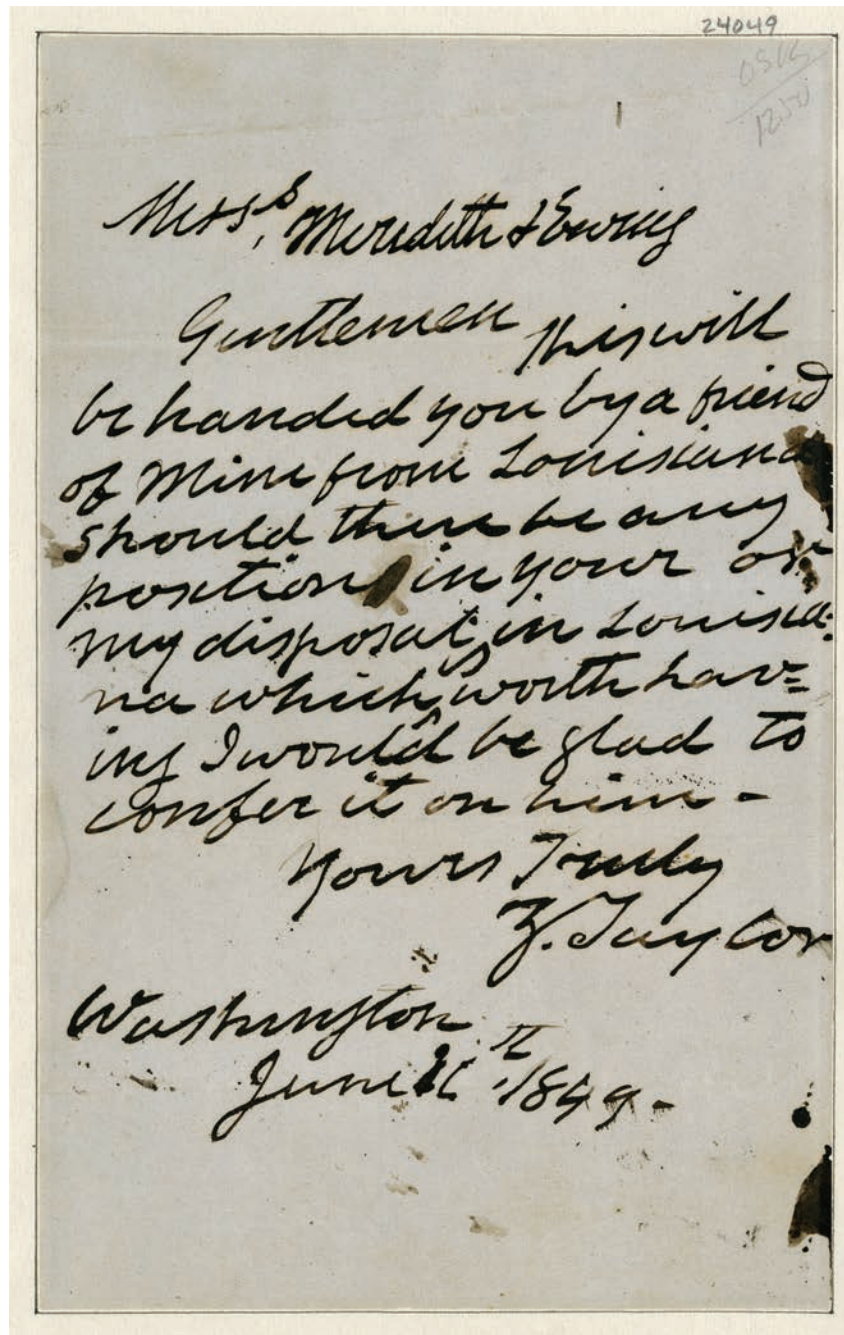 24049
1250
Mess^s, Meredith & Ewing
Gentlemen this will
be handed you by a friend
of Mine from Louisiana
should there be any
position in your or
my disposal, in Louisia-
na which is worth hav=
ing I would be glad to
confer it on him -
Yours Truly
Z. Taylor
Washington
June th 1849.-